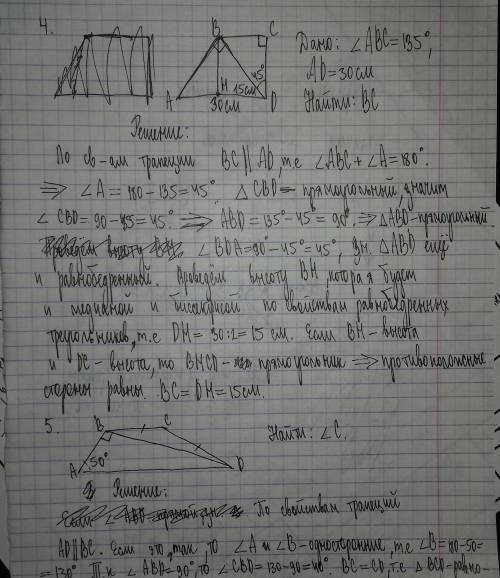 4.
B
C
A
H
D
45°
15см
30см
Дано: ∠ABC=135°,
AD=30см
Найти: BC
Решение:
По св-ам трапеции BC||AD, т.е ∠ABC+∠A=180°.
⇒ ∠A=180-135=45°. △CBD - прямоугольный, значит
∠CBD=90-45=45° ⇒ ABD=135°-45°=90°. ⇒ △ABD-прямоугольный.
∠BDA=90°-45°=45°, зн. △ABD ещё
и равнобедренный. Проведём высоту BH, которая будет
и медианой и биссектрисой по свойствам равнобедренных
треугольников, т.е DH=30:2=15 см. Если BH-высота
и DC-высота, то BHCD- прямоугольник ⇒ противоположные
стороны равны. BC=DH=15см.
5.
B
C
A
50°
D
Найти: ∠C.
Решение:
По свойствам трапеций
AD||BC. Если это так, то ∠A и ∠B-односторонние, т.е ∠B=180-50=
=130° Т.к ∠ABD=90°, то ∠CBD=130-90=40°. BC=CD, т.е △BCD-равно-